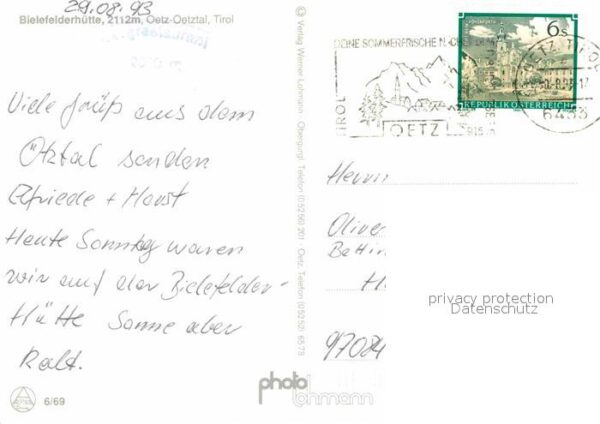 29.08.93
Bielefelderhütte, 2112m, Oetz-Oetztal, Tirol
Viele Grüße aus dem
Ötztal senden
Elfriede + Horst
Heute Sonntag waren
wir auf der Bielefelder-
Hütte Sonne aber
kalt.
6/69
© Verlag Werner Lohmann, Obergurgl, Telefon (05256) 201 · Oetz, Telefon (05252) 6578
photo
lohmann
TIROL
OETZ
915m
6S
REPUBLIK ÖSTERREICH
OETZ, TIROL
6433
Herrn
Oliver
Bettin
H
97084
privacy protection
Datenschutz